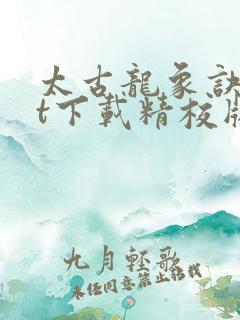 太古龍象訣
t下載精校版
九月輕歌
未经同意禁止转载